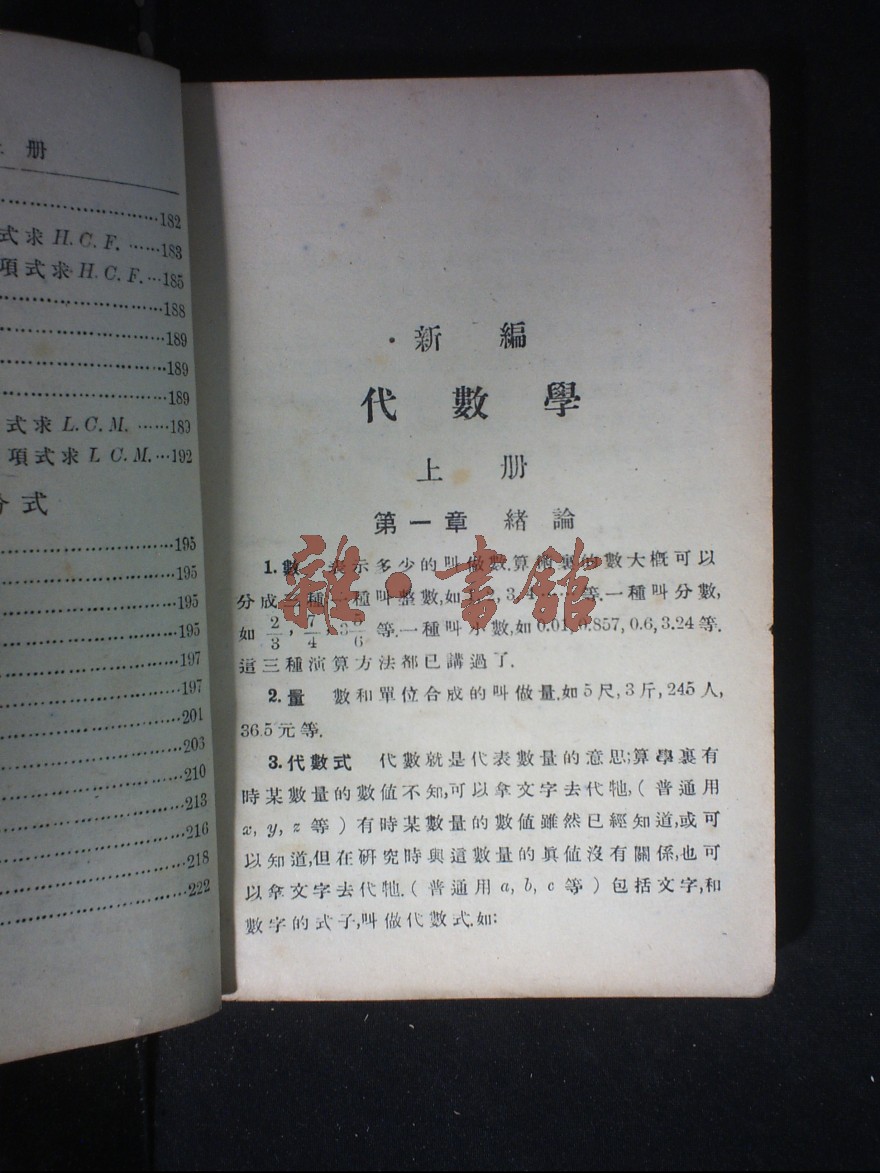 上 册
182
式求 H.C.F. ……183
項式求 H.C.F.…185
188
189
189
189
式求 L.C.M. ……189
項式求 L C.M.…192
分式
195
195
195
195
197
197
201
203
210
213
216
218
222
新 編
代 數 學
上 册
第一章 緒論
1. 數 表示多少的叫做數.算術裏的數大概可以
分成三種一種叫整數,如 1, 2, 3, 4……等.一種叫分數,
如 2/3, 7/4, 3 5/6 等.一種叫小數,如 0.01, 0.857, 0.6, 3.24 等.
這三種演算方法都已講過了.
2. 量 數和單位合成的叫做量.如 5 尺, 3 斤, 245 人,
36.5 元等.
3. 代數式 代數就是代表數量的意思;算學裏有
時某數量的數値不知,可以拿文字去代牠,(普通用
x, y, z 等)有時某數量的數値雖然已經知道,或可
以知道,但在研究時與這數量的眞値沒有關係,也可
以拿文字去代牠.(普通用 a, b, c 等)包括文字,和
數字的式子,叫做代數式.如:
雜·書館